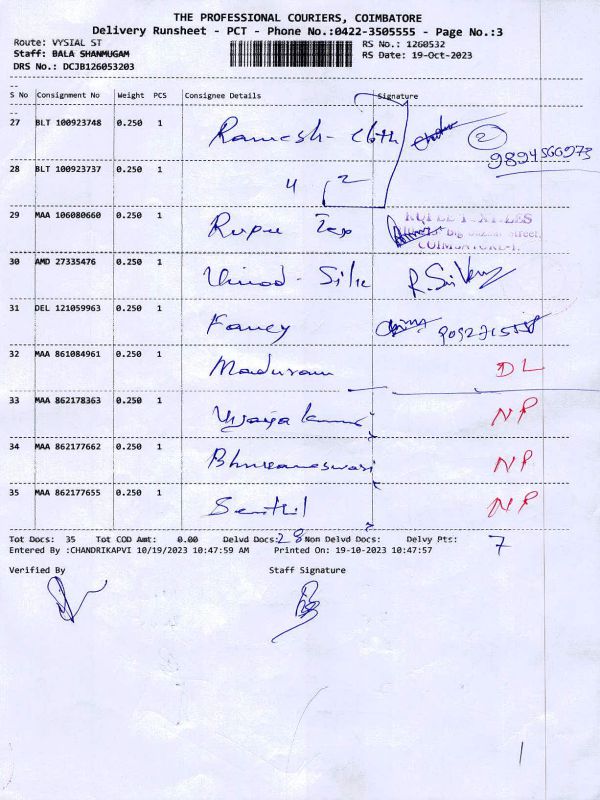 THE PROFESSIONAL COURIERS, COIMBATORE
Delivery Runsheet - PCT - Phone No.:0422-3505555 - Page No.:3
Route: VYSIAL ST RS No.: 1260532
Staff: BALA SHANMUGAM RS Date: 19-Oct-2023
DRS No.: DCJB126053203
S No Consignment No Weight PCS Consignee Details Signature
27 BLT 100923748 0.250 1 Ramesh - Cloth 2
9894566973
28 BLT 100923737 0.250 1 4 2
29 MAA 106080660 0.250 1 Rupee Tex RUPEE TEXTILES
Big Bazaar Street,
COIMBATORE-1.
30 AMD 27335476 0.250 1 Vinod - Silk
31 DEL 121059963 0.250 1 Fancy
32 MAA 861084961 0.250 1 Maduram DL
33 MAA 862178363 0.250 1 Vijaya kumar NP
34 MAA 862177662 0.250 1 Bhuvaneswari NP
35 MAA 862177655 0.250 1 Senthil NP
Tot Docs: 35 Tot COD Amt: 0.00 Delvd Docs: 28 Non Delvd Docs: Delvy Pts: 7
Entered By :CHANDRIKAPVI 10/19/2023 10:47:59 AM Printed On: 19-10-2023 10:47:57
Verified By Staff Signature